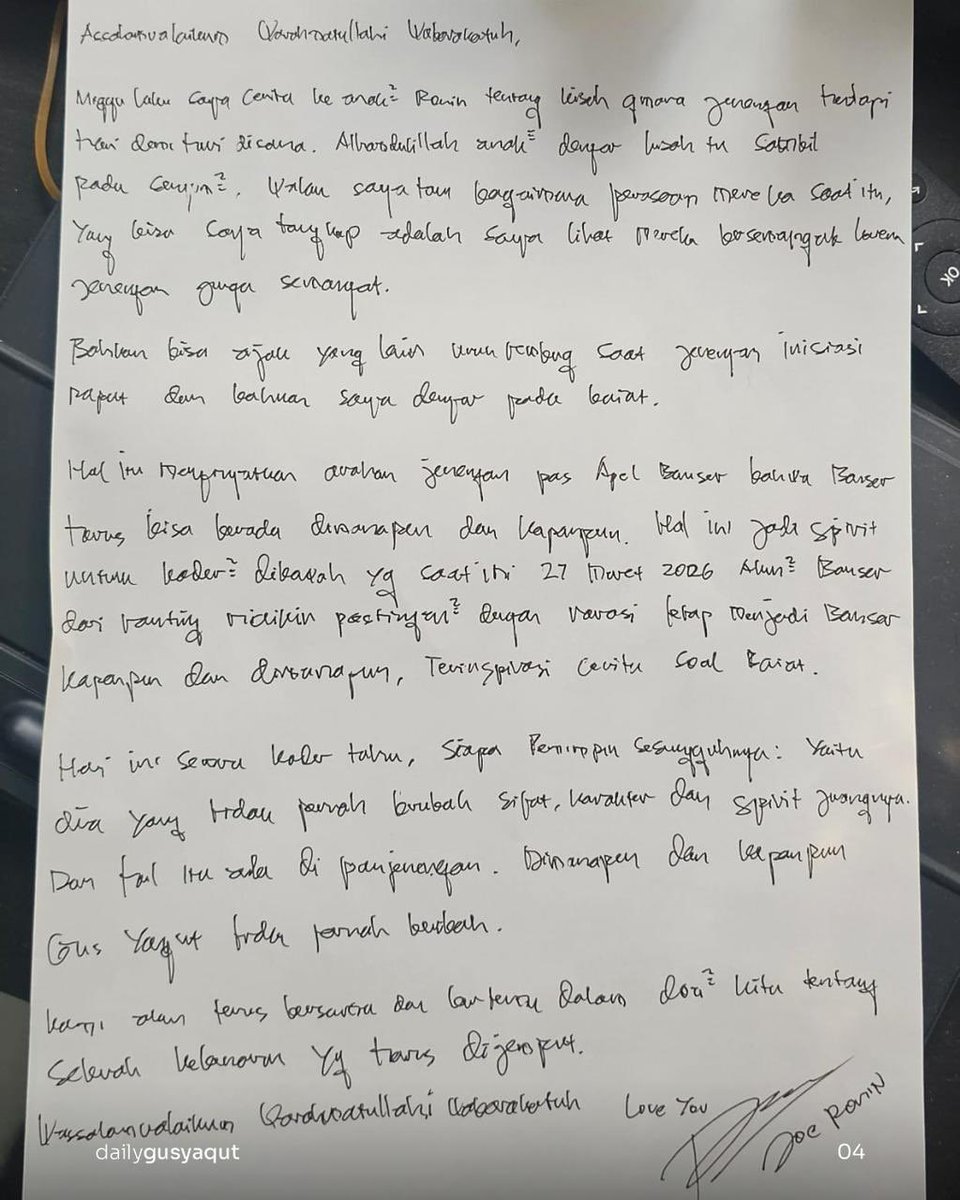 Assalamualaikum Warahmatullahi Wabarakatuh,
Minggu lalu saya cerita ke anak² Ronin tentang kisah gmana jenengan hadapi
hari demi hari disana. Alhamdulillah anak² dengar kisah tu sambil
pada senyum². Walau saya tau bagaimana perasaan mereka saat itu,
Yang bisa saya tangkap adalah saya lihat mereka bersemangat karena
jenengan juga semangat.
Bahkan bisa ajak yang lain urun rembug saat jenengan inisiasi
rapat dan bahkan saya dengar pada baiat.
Hal itu menyatakan arahan jenengan pas Apel Banser bahwa Banser
harus bisa berada dimanapun dan kapanpun. Hal ini jadi spirit
untuk kader² dibawah yg saat ini 27 Maret 2026 Akun² Banser
dari ranting bikin postingan² dengan narasi tetap menjadi Banser
kapanpun dan dimanapun, Terinspirasi cerita soal Baiat.
Hari ini semua kader tahu, siapa Pemimpin sesungguhnya: Yaitu
dia yang tidak pernah berubah sifat, karakter dan spirit juangnya.
Dan hal itu ada di panjenengan. Dimanapun dan kapanpun
Gus Yaqut tidak pernah berubah.
Kami akan terus bersama dan bertemu dalam doa² kita tentang
sebuah kebenaran yg harus dijemput.
Wassalamualaikum Warahmatullahi Wabarakatuh Love You
Joe Ronin
dailygusyaqut 04